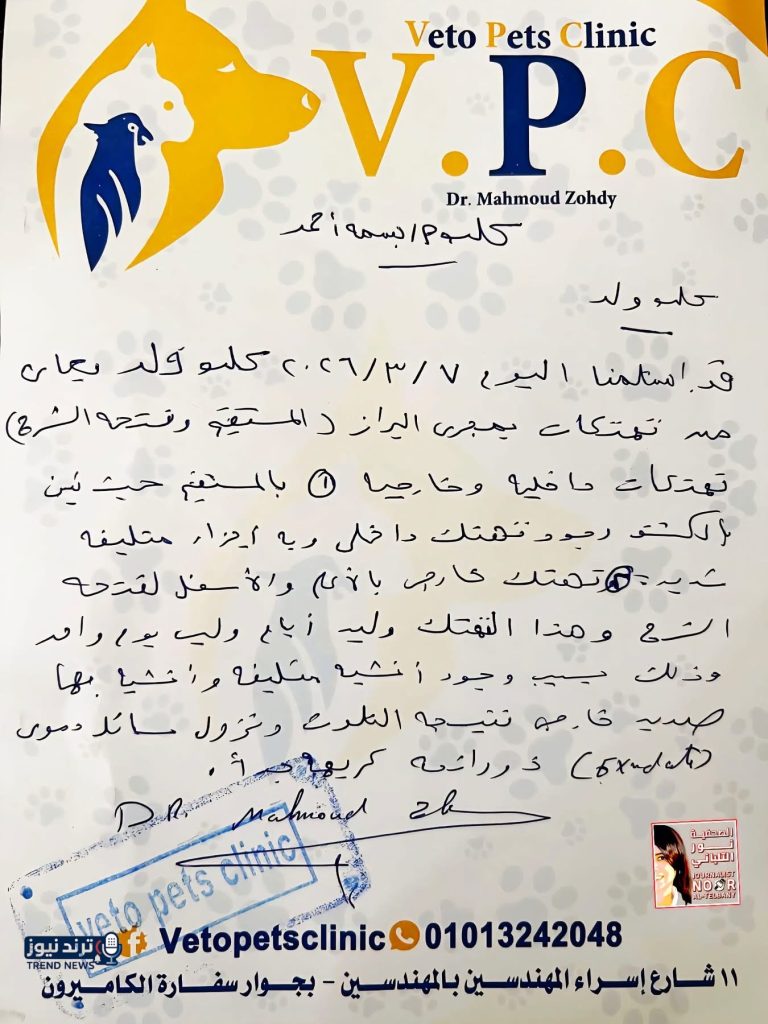 Veto Pets Clinic
V.P.C
Dr. Mahmoud Zohdy
كلب م/ بسمه أحمد
كلب ولد
قد استلمنا اليوم ٢٠٢٦/٣/٧ كلب ولد يعانى
من تهتكات بمجرى البراز (المستقيم وفتحه الشرج)
تهتكات داخليه وخارجيه ① بالمستقيم حيث تبين
بالكشف وجود تهتك داخلى وبه أجزاء متليفه
شديده ② تهتك خارجى بالأعلى والأسفل لفتحه
الشرج وهذا التهتك وليد أيام وليس يوم واحد
وذلك بسبب وجود أنسجه متليفه وأنسجه بها
صديد خارجه نتيجه التلوث ونزول سائل دموى
(Exudate) ذو رائحه كريهه جدأ.
DR. Mahmoud
veto pets clinic
الصحفية
نور
التلباني
JOURNALIST
NOOR
AL-TELBANY
ترند نيوز
TREND NEWS
Vetopetsclinic 01013242048
١١ شارع إسراء المهندسين بالمهندسين - بجوار سفارة الكاميرون